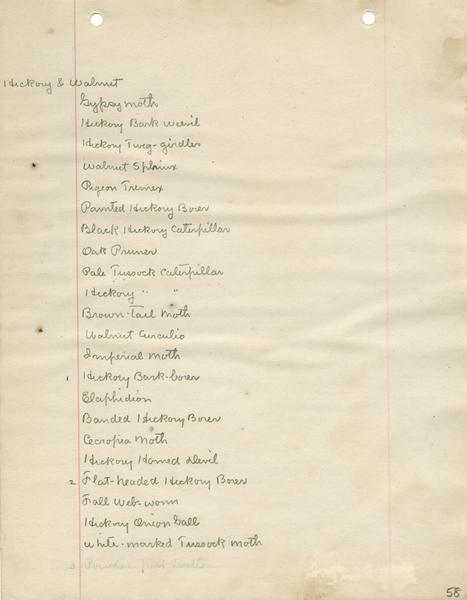 Hickory & Walnut
Gypsy moth
Hickory Bark weevil
Hickory Twig-girdler
Walnut Sphinx
Pigeon Tremex
Painted Hickory Borer
Black Hickory Caterpillar
Oak Pruner
Pale Tussock Caterpillar
Hickory " "
Brown-Tail Moth
Walnut Curculio
Imperial Moth
1 Hickory Bark-borer
Elaphidion
Banded Hickory Borer
Cecropia Moth
Hickory Horned Devil
2 Flat-headed Hickory Borer
Fall Web-worm
Hickory Onion Gall
White-marked Tussock Moth
3 Powder post
58